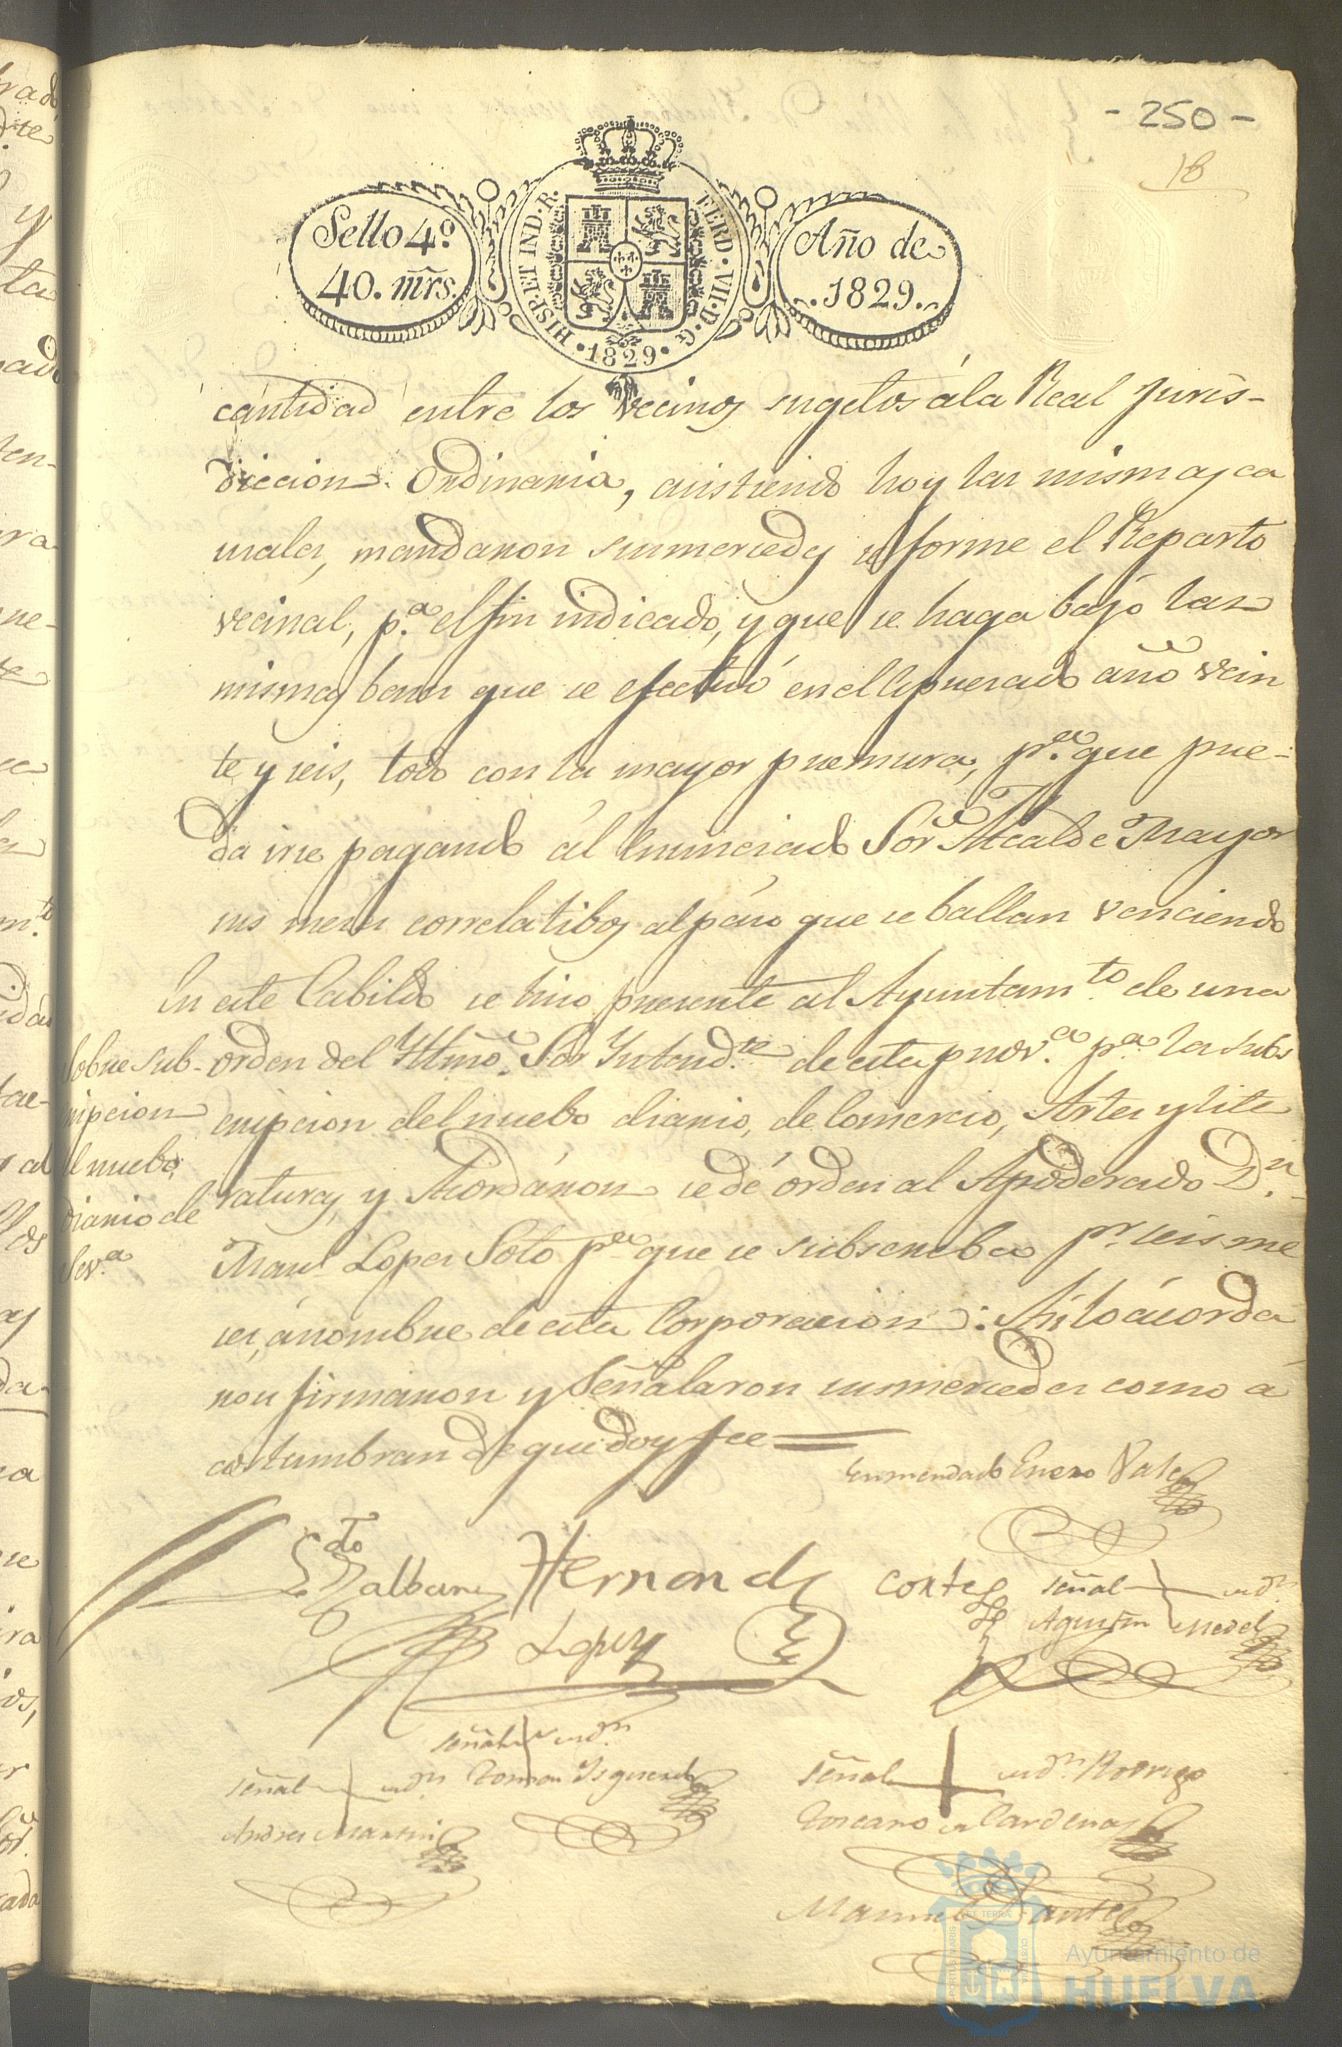 - 250 -
18
Sello 4.º
40. mrs.
HISP. ET IND. R.
FERD. VII. D. G.
1829
Año de
1829.
cantidad entre los vecinos sugetos ála Real Juris-
diccion Ordinaria, existiendo hoy las mismas ca
usales, mandaron susmercedes se forme el Reparto
vecinal, p.ª el fin indicado, y que se haga bajo las
mismas bases que se efectuó en el espresado año vein
te y seis, todo con la mayor premura, p.ª que pue-
da irse pagando al enunciado Sor. Alcalde Mayor
sus meses correlatibos al paso que se ballan venciendo
En este Cabildo se hizo presente al Ayuntam.to de una
Sobre sub-
cripcion
el nuebo
diario de
Sev.ª
orden del Yltmo. Sor Yntend.te de esta prov.ª p.ª la subs
cripcion del nuebo diario, de Comercio, Artes y lite
raturas, y Acordáron se dé órden al Apoderado D.n
Man.l Lopez Soto p.ª que se subscriba p.r seis me
ses, á nombre de esta Corporacion: Asi lo acorda
ron firmaron y Señalaron susmercedes como á
costumbran de que doy fee =
Enmendado Enero Vale
L.do Balbuen
Hernandz
Cortes
señal + de D.n
Agustin Medel
Lopez
señal + de D.n
Roman Izquierdo
señal + de D.n
Andres Martin
señal + de D.n Rodrigo
Toscano Cardenas
Manuel
Ayuntamiento de
HUELVA